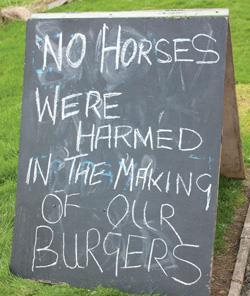 NO HORSES
WERE
HARMED
IN THE MAKING
OF OUR
BURGERS